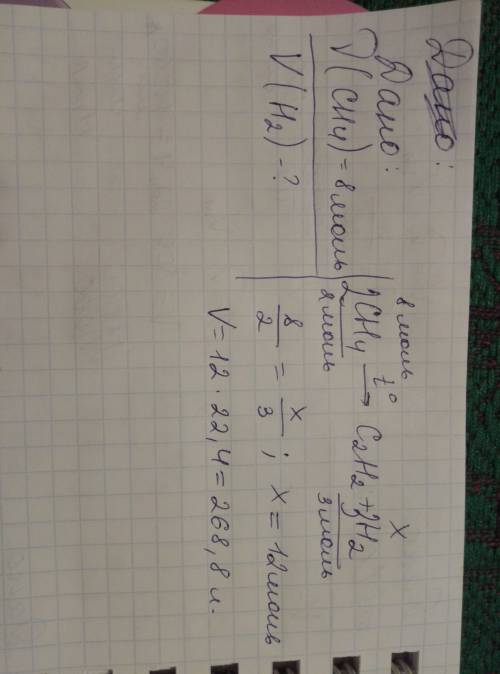 Дано:
Дано:
ν(CH4) = 8 моль
V(H2) - ?
8 моль x
2CH4 t° → C2H2 + 3H2
2 моль 3 моль
8/2 = x/3 ; x = 12 моль
V = 12 · 22,4 = 268,8 л.